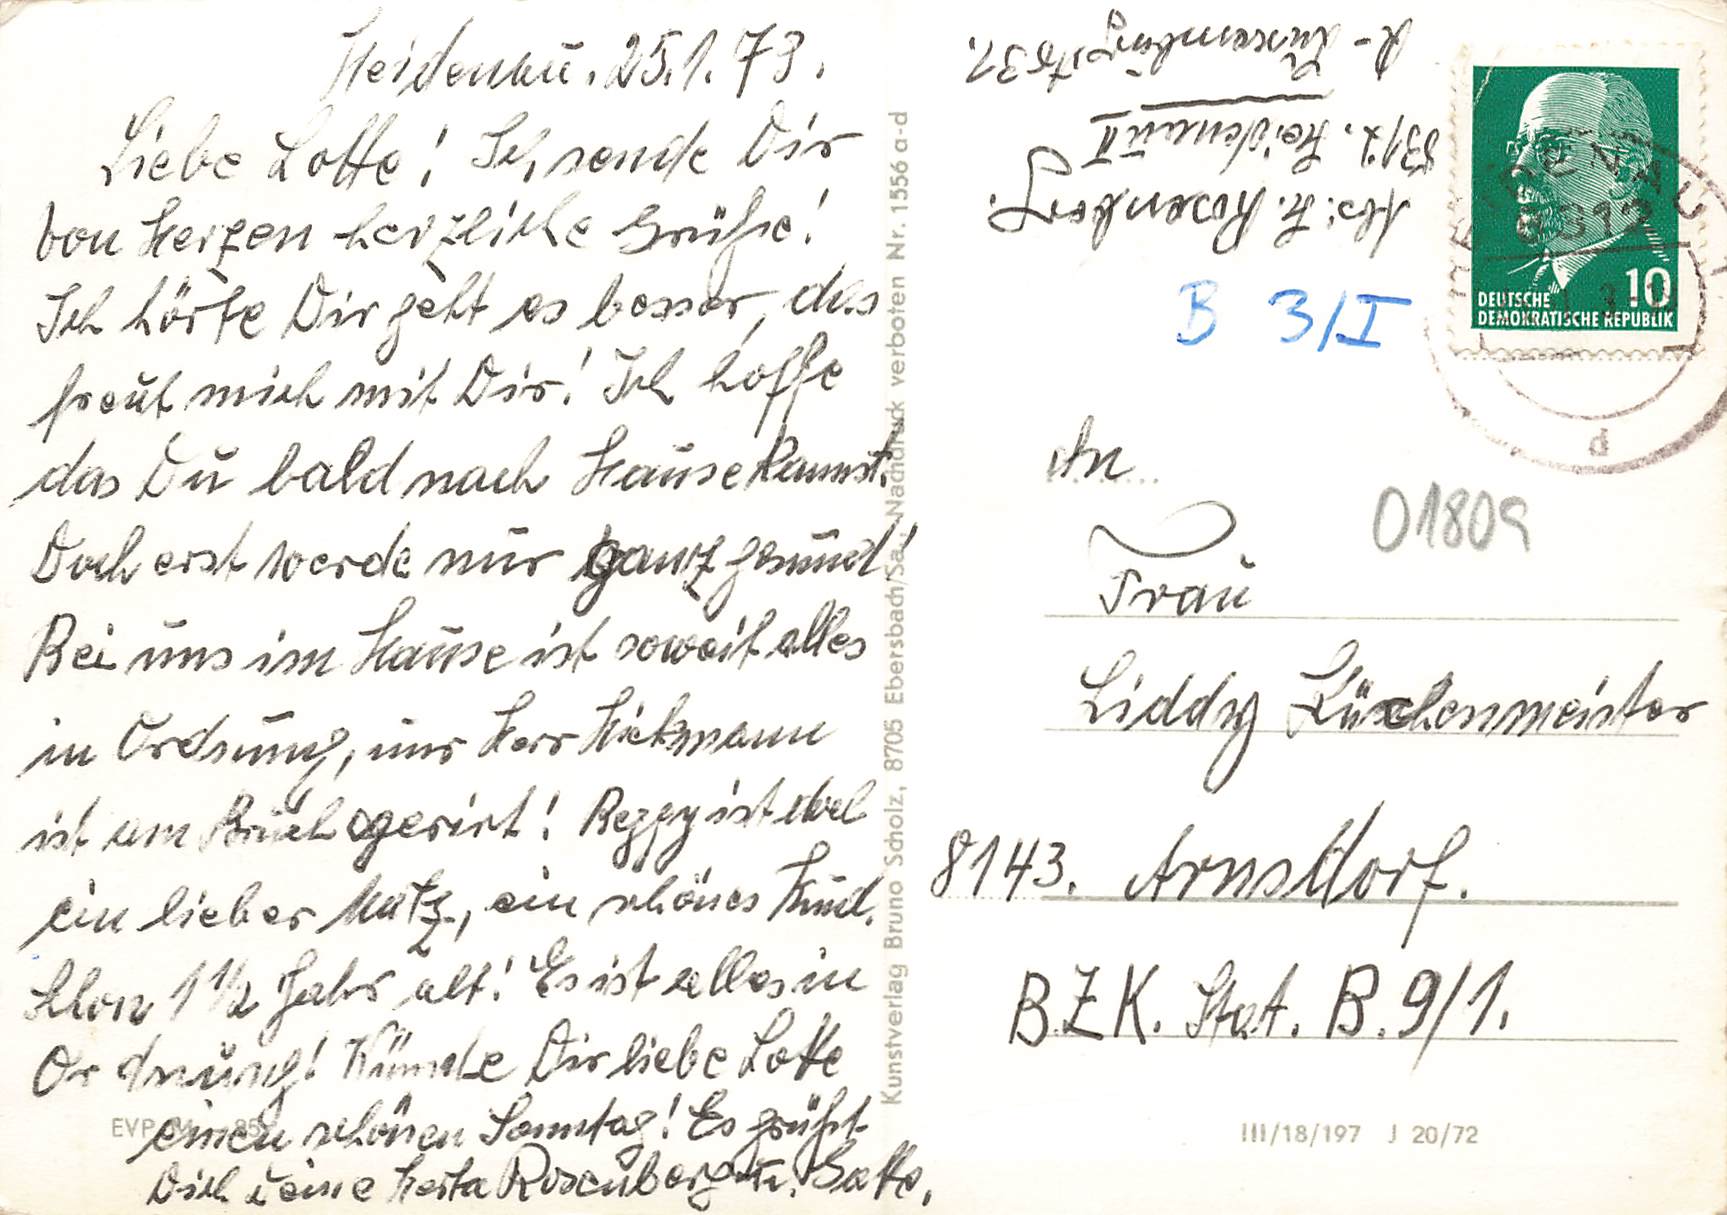 Heidenau. 25.1.73.
Liebe Lotte! Ich sende Dir
von Herzen herzliche Grüße!
Ich hörte Dir geht es besser, das
freut mich mit Dir! Ich hoffe
das Du bald nach Hause kannst.
Doch erst werde nur ganz gesund!
Bei uns im Hause ist soweit alles
in Ordnung, nur Herr Hickmann
ist am Bruch operirt! Peggy ist
ein lieber Matz, ein schönes Kind.
Schon 1 1/2 Jahr alt! Es ist alles in
Ordnung! Wünsche Dir liebe Lotte
einen schönen Sonntag! Es grüßt
Dich Deine Herta Rosenberg u. Gatte.
EVP
Kunstverlag Bruno Scholz, 8705 Ebersbach/Sa., Nachdruck verboten Nr. 1556 a-d
Abs: H. Rosenberg.
8312. Heidenau II
R-Luxemburgstr 31.
DEUTSCHE
DEMOKRATISCHE REPUBLIK
10
HEIDENAU
8312
d
B 3/I
An
01809
Frau
Liddy Küchenmeister
8143. Arnsdorf.
BZK. Stat. B.9/1.
III/18/197 J 20/72